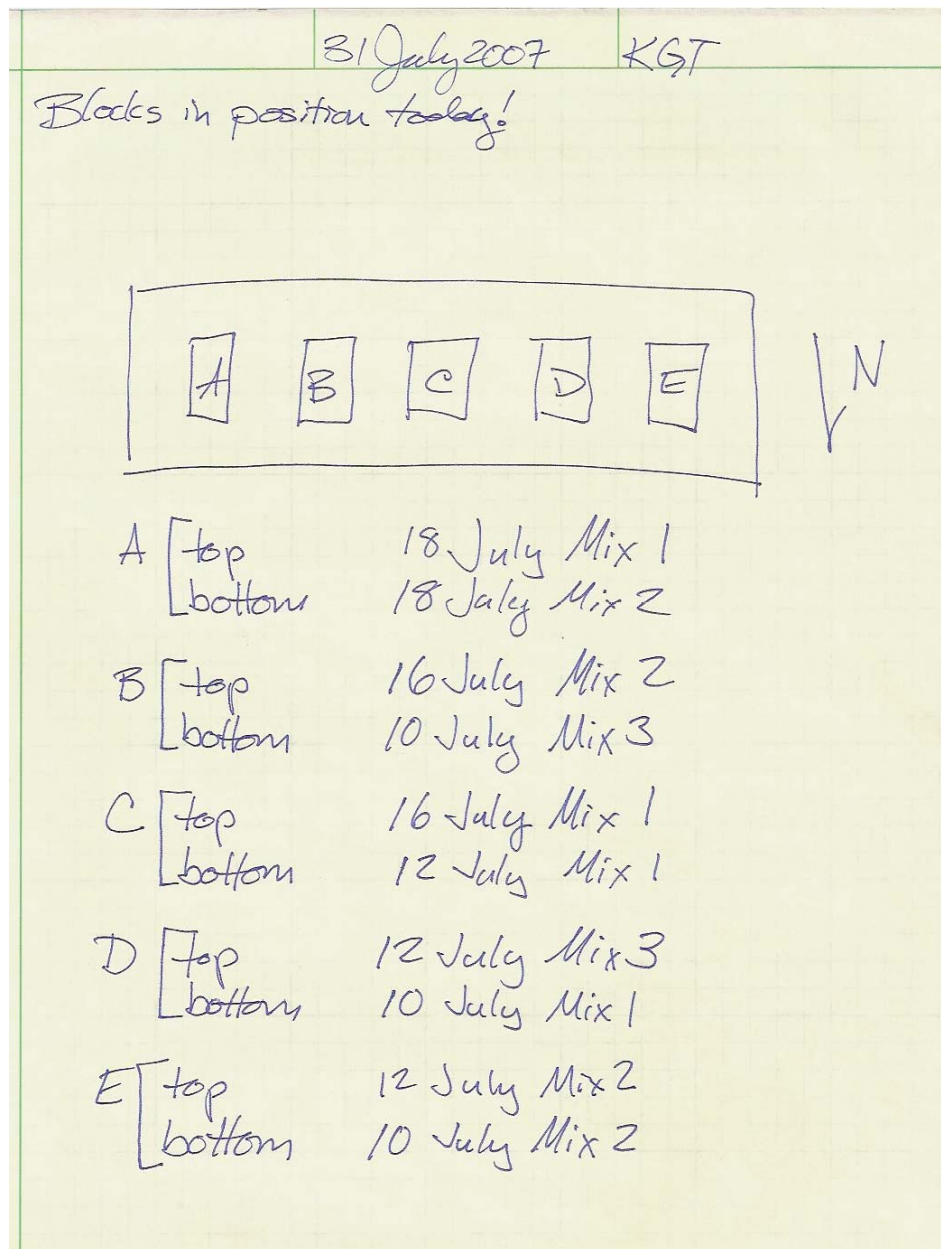 31 July 2007 KGT
Blocks in position today!
A B C D E N
A top 18 July Mix 1
bottom 18 July Mix 2
B top 16 July Mix 2
bottom 10 July Mix 3
C top 16 July Mix 1
bottom 12 July Mix 1
D top 12 July Mix 3
bottom 10 July Mix 1
E top 12 July Mix 2
bottom 10 July Mix 2